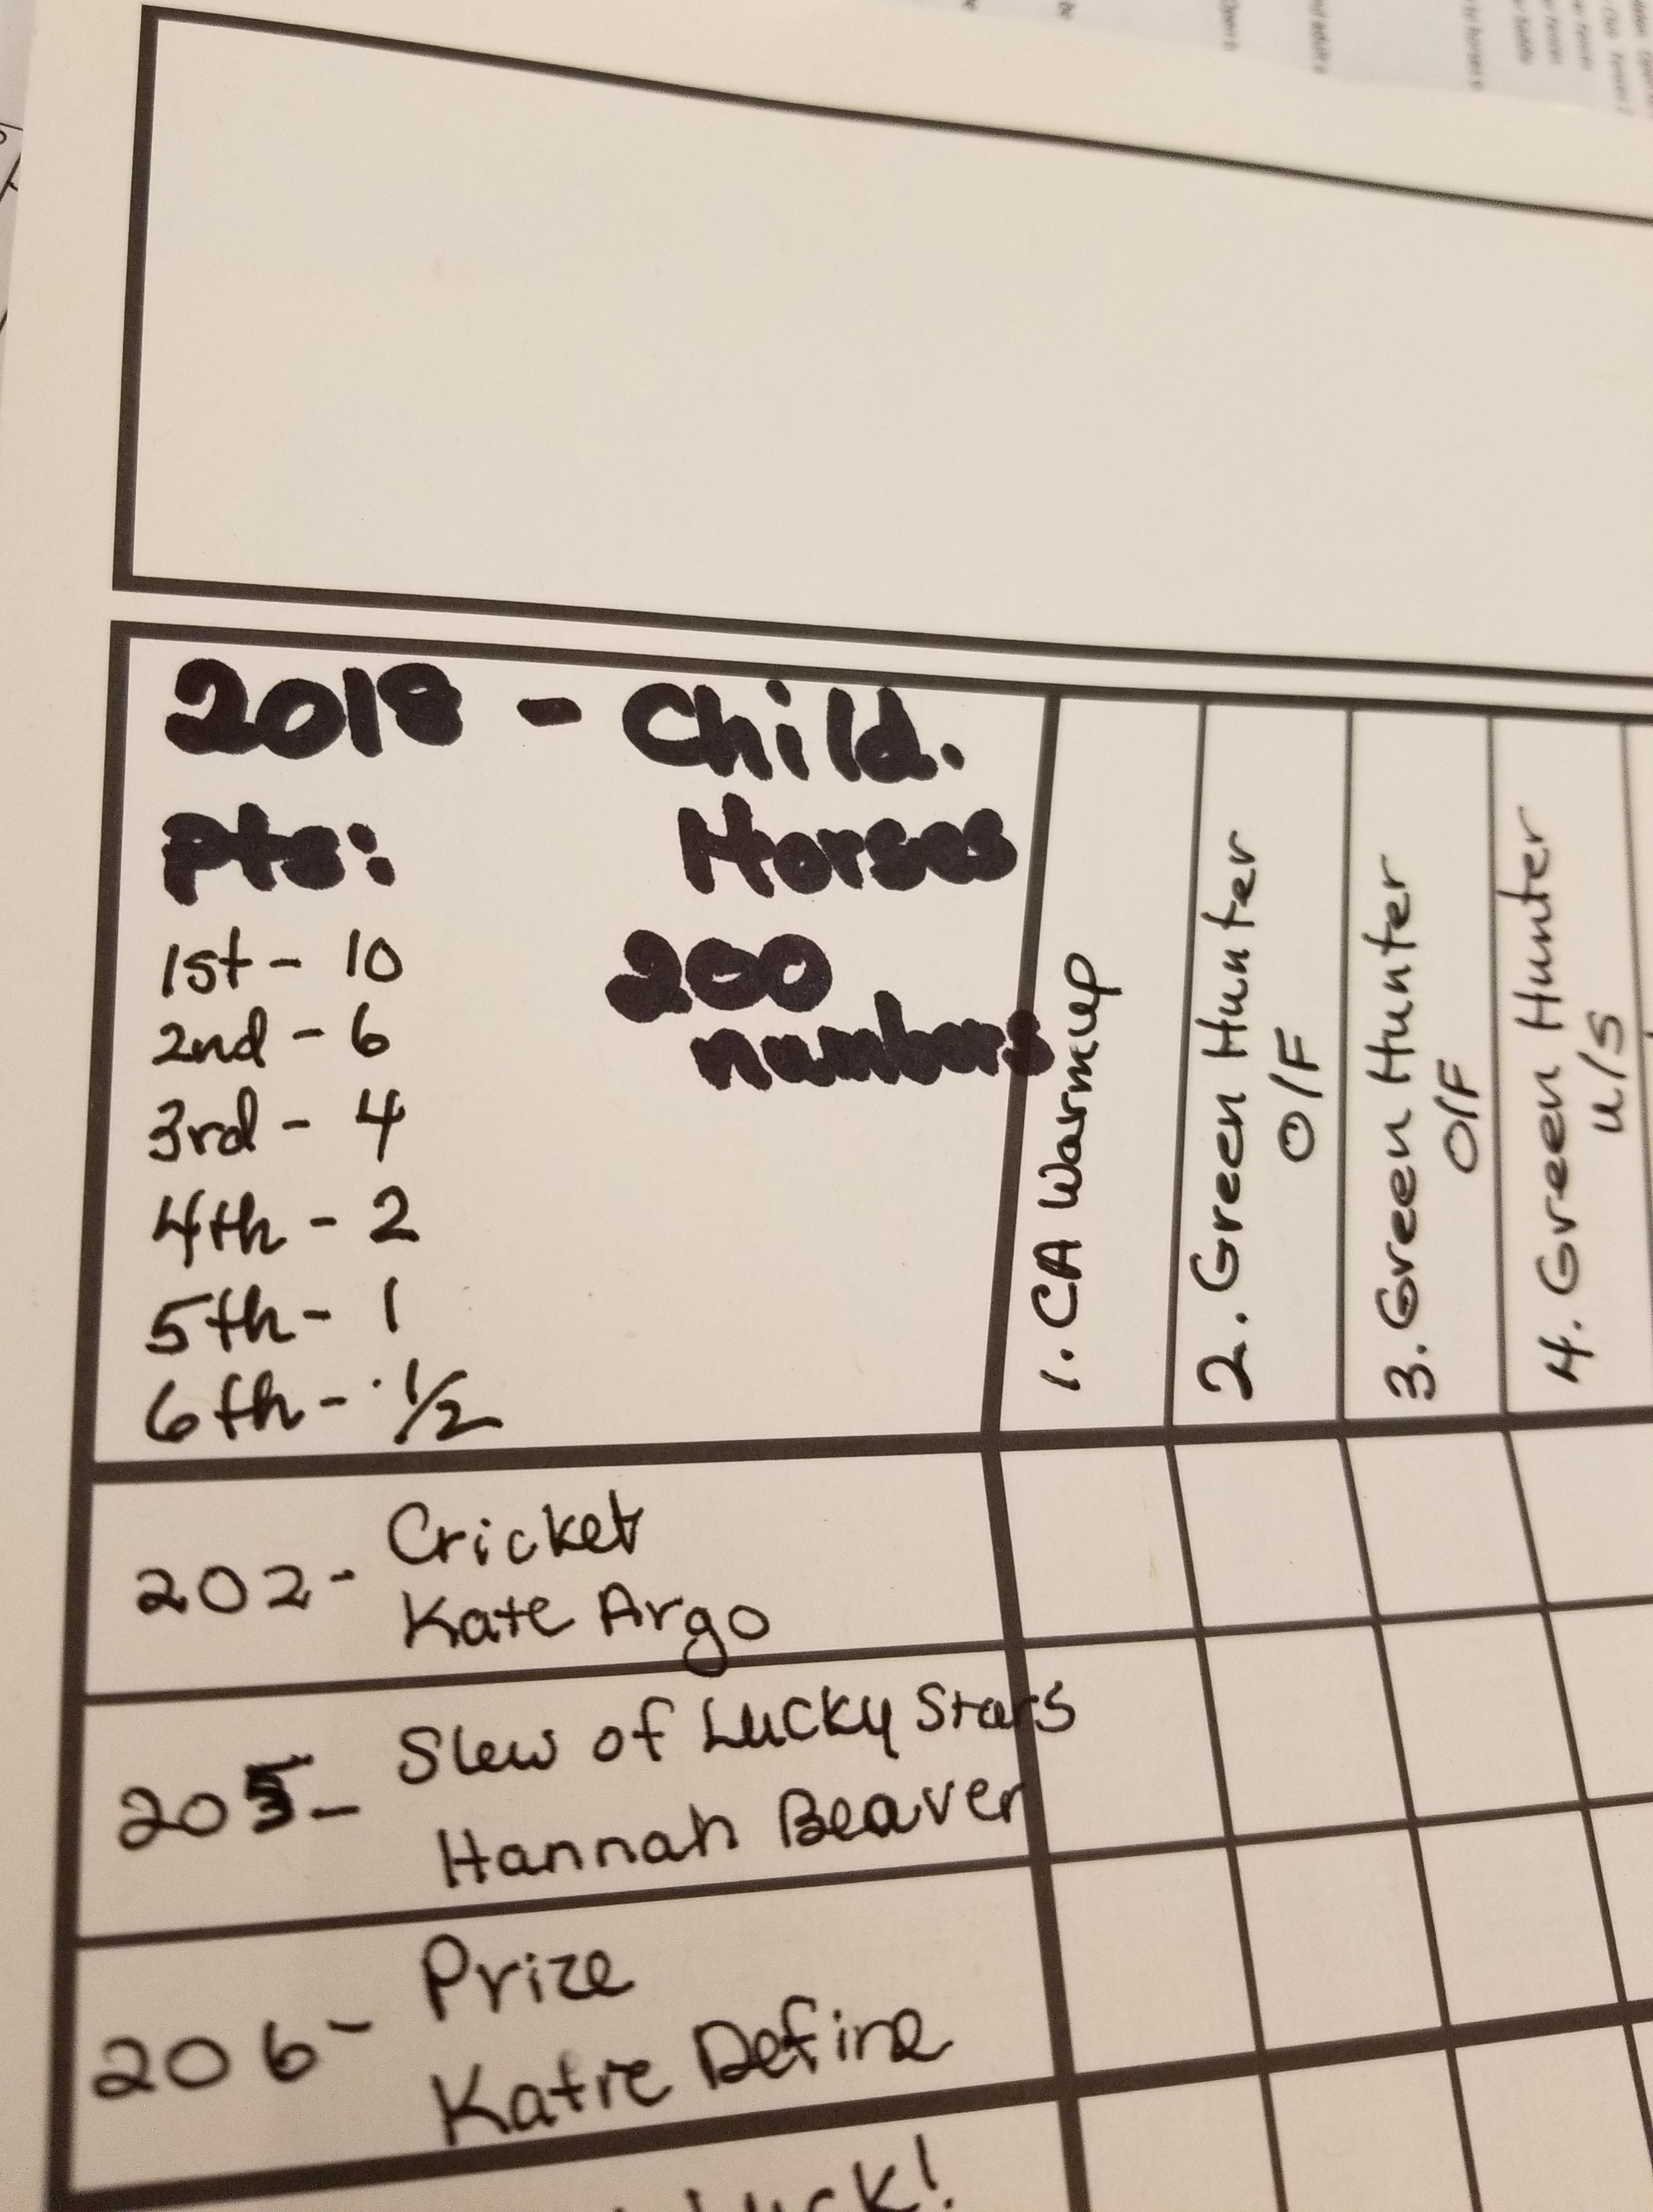 2018 - Child.
Pts: Horses
1st - 10 200
2nd - 6 numbers
3rd - 4
4th - 2
5th - 1
6th - 1/2
1. CA Warmup
2. Green Hunter
O/F
3. Green Hunter
O/F
4. Green Hunter
u/s
202- Cricket
Kate Argo
205- Slew of Lucky Stars
Hannah Beaver
206- Prize
Katie Define